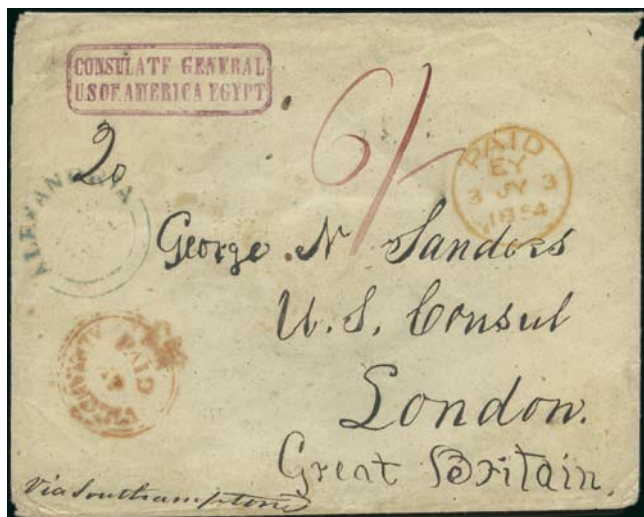 CONSULATE GENERAL
US OF AMERICA EGYPT
6/-
20
PAID
EY
3 JY 3
1854
ALEXANDRIA
George N Sanders
U. S. Consul
London.
Great Britain.
PAID
ALEXANDRIA
Via Southampton